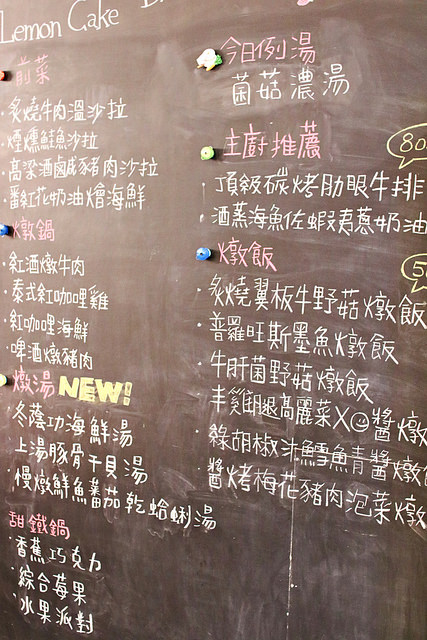 Lemon Cake
前菜
·炙燒牛肉溫沙拉
·煙燻鮭魚沙拉
·高梁酒鹹豬肉沙拉
·番紅花奶油燴海鮮
燉鍋
·紅酒燉牛肉
·泰式紅咖哩雞
·紅咖哩海鮮
·啤酒燉豬肉
燉湯 NEW!
·冬蔭功海鮮湯
·上湯豚骨干貝湯
·慢燉鮮魚蕃茄乾蛤蜊湯
甜鐵鍋
·香蕉巧克力
·綜合莓果
·水果派對
今日例湯
菌菇濃湯
主廚推薦
80
·頂級碳烤肋眼牛排
·酒蒸海魚佐蝦夷蔥奶油
燉飯
5
·炙燒翼板牛野菇燉飯
·普羅旺斯墨魚燉飯
·牛肝菌野菇燉飯
·半雞腿高麗菜XO醬燉
·綠胡椒汁鱈魚青醬燉
·醬烤梅花豬肉泡菜燉